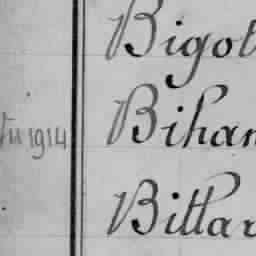 Bigot
Vu 1914 Bihan
Billar